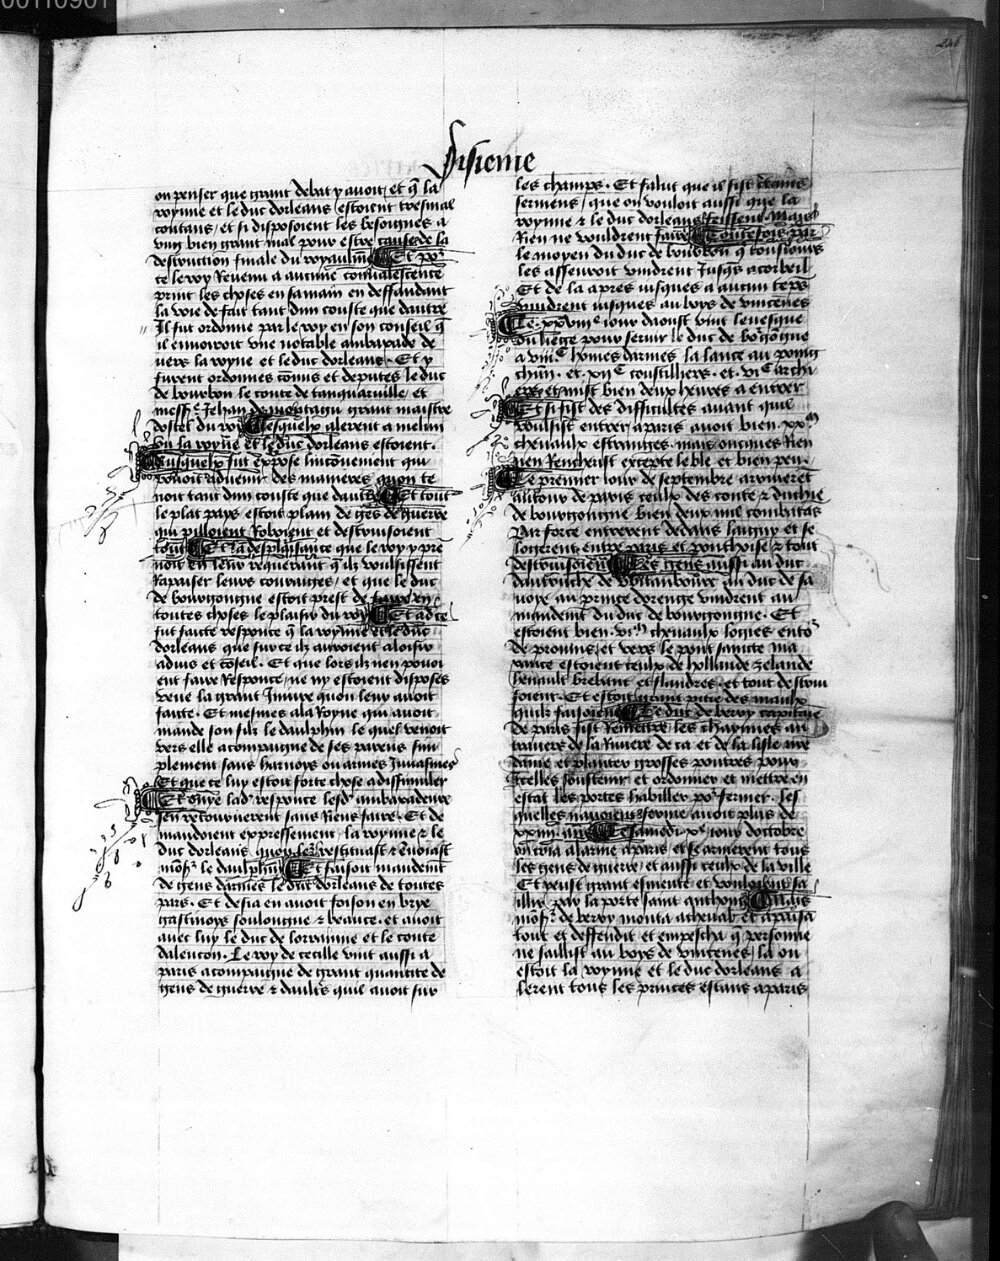 00110901
246
Sisieme
on penser que grant debat y auoit / et q̄ la
royne et le duc dorleans estoient tresmal
contans / et si disposoient les besongnes a
vng bien grant mal pour estre cause de la
destruction finale du royaulme Et po2
ce le roy Reuenu a aucune conualescence
print les choses en sa main en deffandant
la voie de fait tant dun couste que dautre
Il fut ordonne par le roy en son conseil q̄
il enuoiroit vne notable ambaxade de
uers la royne et le duc dorleans · Et y
furent ordonnes cōmis et deputes le duc
de bourbon le conte de tanquaruille / et
mess̄ Jehan de montagu grant maistre
dostel du roy Lesquelx alerent a melun
ou la royne et le duc dorleans estoient ·
Ausquelx fut expose linconuenient qui
pouoit aduenir des manieres quon te
noit tant dun couste que dautr̄ Et tout
le plat pays estoit plain de gēs de guerre
qui pilloient Roboient et destruisoient
tout Et la desplaisance que le roy y pre
noit en leur requerant q̄ ilz voulsissent
Rapaiser leurs couraiges / et que le duc
de bourgongne estoit prest de faire en
toutes choses le plaisir du roy Et ad ce
fut faicte responce q̄ la royne et le duc
dorleans que sur ce ilz auroient aloisir
aduis et cōseil · Et que lors ilz nen pouoi
ent faire Responce / ne ny estoient disposes
veue la grant Iniure quon leur auoit
faicte · Et mesmes a la Royne qui auoit
mande son filz le daulphin le quel venoit
vers elle acompaigne de ses parens sim
plement sans harnoys ou armes Inuasiues
Et que ce luy estoit forte chose a dissimuler
Et ouye lad̄ responce lesd̄ ambaxadeurs
sen retournerent sans Riens faire · Et de
mandoient expressement la royne & le
duc dorleans quon les restituast & enuoiast
mōs̄ le daulphin Et faisoit mandem̄t
de gens darmes le duc dorleans de toutes
pars · Et desia en auoit foison en brye
gastinoys soulongne & beauce · et auoit
auec luy le duc de lorrainne et le conte
dalencon · Le roy de cecille vint aussi a
paris acompaigne de grant quantite de
gens de guerre & daultr̄s quil auoit sur
les champs · Et falut que il fist certains
sermens / que on vouloit aussi que la
royne & le duc dorleans feissent Mais
Rien ne vouldrent faire Toutesfois par
le moyen du duc de bourbon q̄ tousiours
les asseuroit vindrent Jusq̄s a corbeil
Et de la apres iusques a aucun tēps
vindrent iusques au boys de vincēnes
Le · xxviii͏ͤ iour daoust vint leuesque
du liege pour seruir le duc de borgōgne
a viiiͨ hōmes darmes la lance au poing
chūn · et · xiiͨ coustilliers · et · viͨ archi
ers et mist bien deux heures a entrer
Et si fist des difficultes auant quil
voulsist entrer a paris auoit bien · xxᵐ
cheuaulx estranges mais oncques Rien
nen Rencherist excepte le ble et bien peu ·
Le premier iour de septembre arriueret
autour de paris ceulx des conte & duchie
de bourgongne bien deux mil combatās
Par force entrerent dedans laigny et se
logerent entre paris et ponthoise & tout
destruisoient Les gens aussi au duc
daustriche de vbitambourc au duc de sa
uoye au prince dorenge vindrent au
mandemēt du duc de bourgongne · Et
estoient bien · viᵐ cheuaulx logies ento2
de prouuins / et vers le pont saincte ma
xance estoient ceulx de hollande zelande
henault brebant et flandres · et tout destrui
soient · Et estoit grant pitie des maulx
quilz faisoient Le duc de berry capitaine
de paris fist Remettre les chaynnes au
trauers de la Riuiere de ca et de la lisle nre
dame et planter grosses poutres pour
Icelles soustenir et ordonner et mettre en
estat les portes habiller po2 fermer · Les
quelles nauoient ferme auoit plus de
xxiiii · ans Le samedi · x͏ͤ iour doctobre
on cria alarme a paris et se armerent tous
les gens de guerre / et aussi ceulx de la ville
Et y eust grant esmeute et vouloient sa
illir par la porte saint anthoine Mais
mōs̄ de berry monta acheual et apaisa
tout et deffendit et empescha q̄ personne
ne saillist au boys de vincēnes / la ou
estoit la royne et le duc dorleans a
lerent tous les princes estans a paris